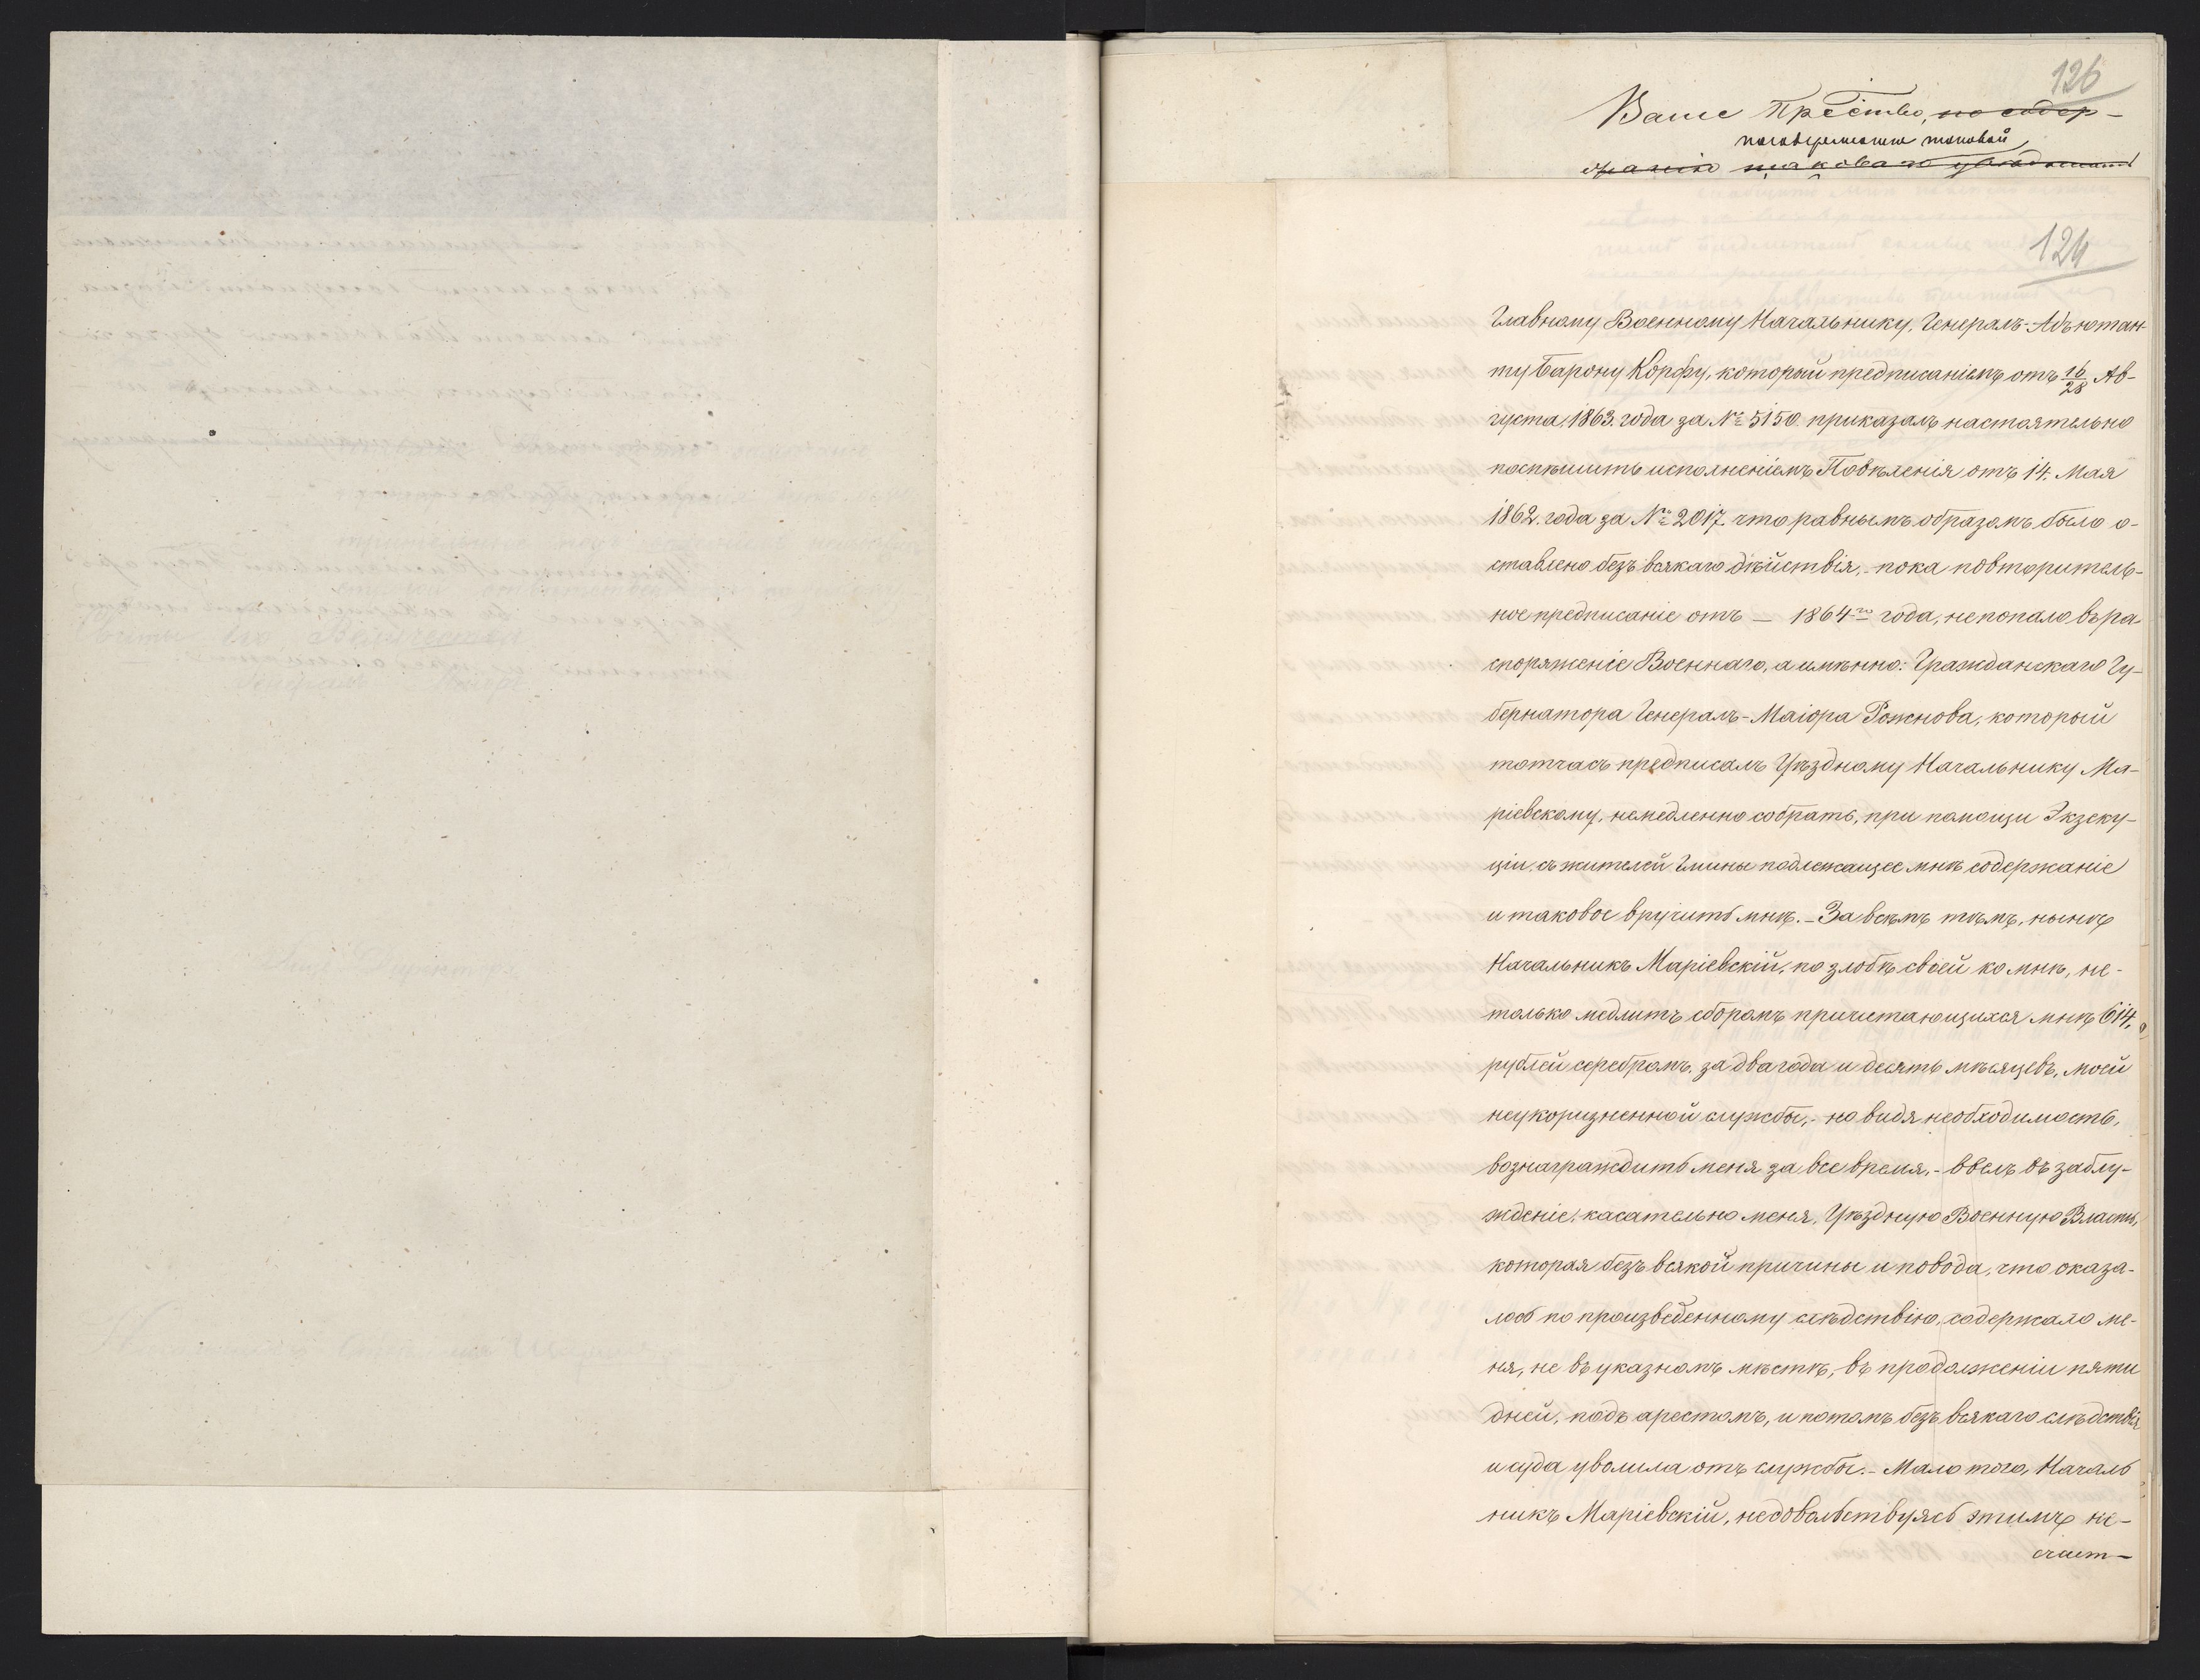 126
Ваше Пре͠ство, по содер-
жанію таковаго
124
Главному Военному Начальнику, Генералъ-Адъютан-
ту Барону Корфу, который предписаніемъ отъ 16/28 Ав-
густа 1863. года за № 5150 приказалъ настоятельно
поспѣшить исполненіемъ Повѣленія отъ 14. Мая
1862. года за № 2017. что равнымъ образомъ было о-
ставлено безъ всякаго дѣйствія,- пока повторитель-
ное предписаніе отъ — 1864го года, не попало въ ра-
споряженіе Военнаго, а имѣнно: Гражданскаго Гу-
бернатора Генералъ-Маіора Рожнова, который
тотчасъ предписалъ Уѣздному Начальнику Ма-
ріевскому, немедленно собрать, при помощи Экзеку-
ціи, съ жителей Гмины подлежащее мнѣ содержаніе
и таковое вручить мнѣ.- За всѣмъ тѣмъ, нынѣ
Начальникъ Маріевскій, по злобѣ своей ко мнѣ, не-
только медлитъ сборомъ причитающихся мнѣ 614,
рублей серебромъ, за два года и десять мѣсяцевъ, моей
неукоризненной службы,- но видя необходимость,
вознаградить меня за все время,- ввелъ въ заблу-
жденіе, касательно меня, Уѣздную Военную Власть,
которая безъ всякой причины и повода, что оказа-
лось по произведенному слѣдствію, содержало ме-
ня, не въ указномъ мѣстѣ, въ продолженіи пяти
дней, подъ арестомъ, и потомъ безъ всякаго слѣдствія
и суда уволила отъ службы.- Мало того, Началь
никъ Маріевскій, недовольствуясь этимъ не-
счаст-